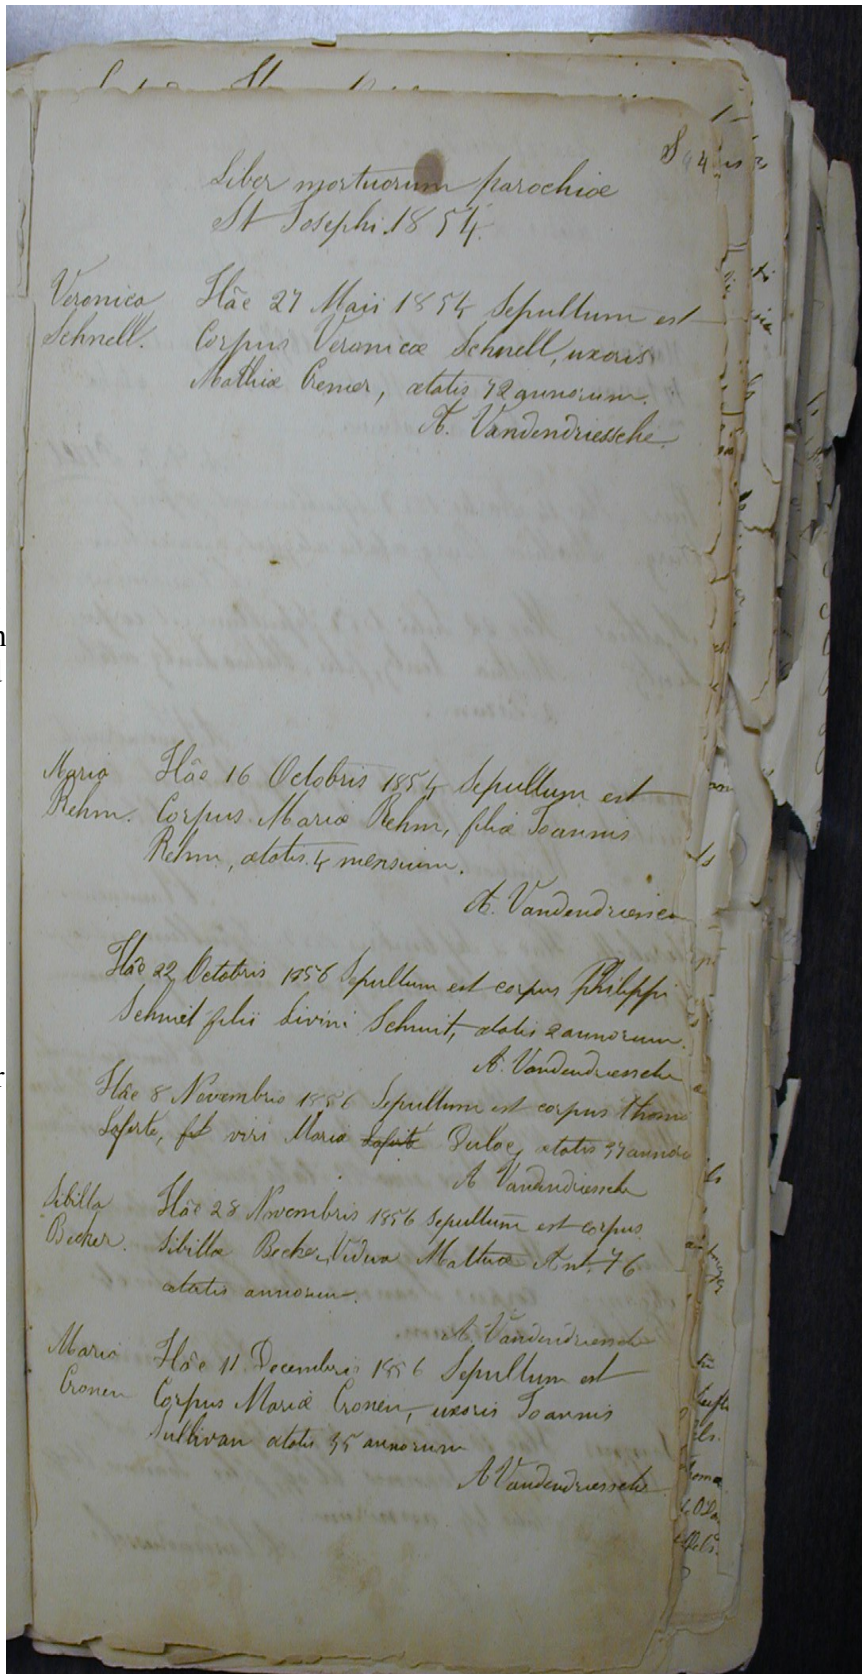 Liber mortuorum parochiæ
St Josephi. 1854.
Veronica
Schnell.
Hâc 27 Maii 1854 Sepultum est
Corpus Veronicæ Schnell, uxoris
Mathiæ Cremer, ætatis 42 annorum.
A. Vandendriessche
Maria
Rehm.
Hâc 16 Octobris 1854 Sepultum est
Corpus Mariæ Rehm, filiæ Joannis
Rehm, ætatis 4 mensium.
A. Vandendriessche
Hâc 22 Octobris 1856 Sepultum est corpus Philippi
Schmit filii Livini Schmit, ætatis 2 annorum.
A. Vandendriessche
Hâc 8 Novembris 1856 Sepultum est corpus Thomæ
Laferte, viri Mariæ ætatis annorum
A Vandendriessche
Sibilla
Becker.
Hâc 28 Novembris 1856 Sepultum est corpus
Sibillæ Becker, Vidua 76
ætatis annorum.
A Vandendriessche
Maria
Cronen
Hâc 11 Decembris 1856 Sepultum est
Corpus Mariæ Cronen, uxoris Joannis
Sullivan ætatis 35 annorum
A Vandendriessche